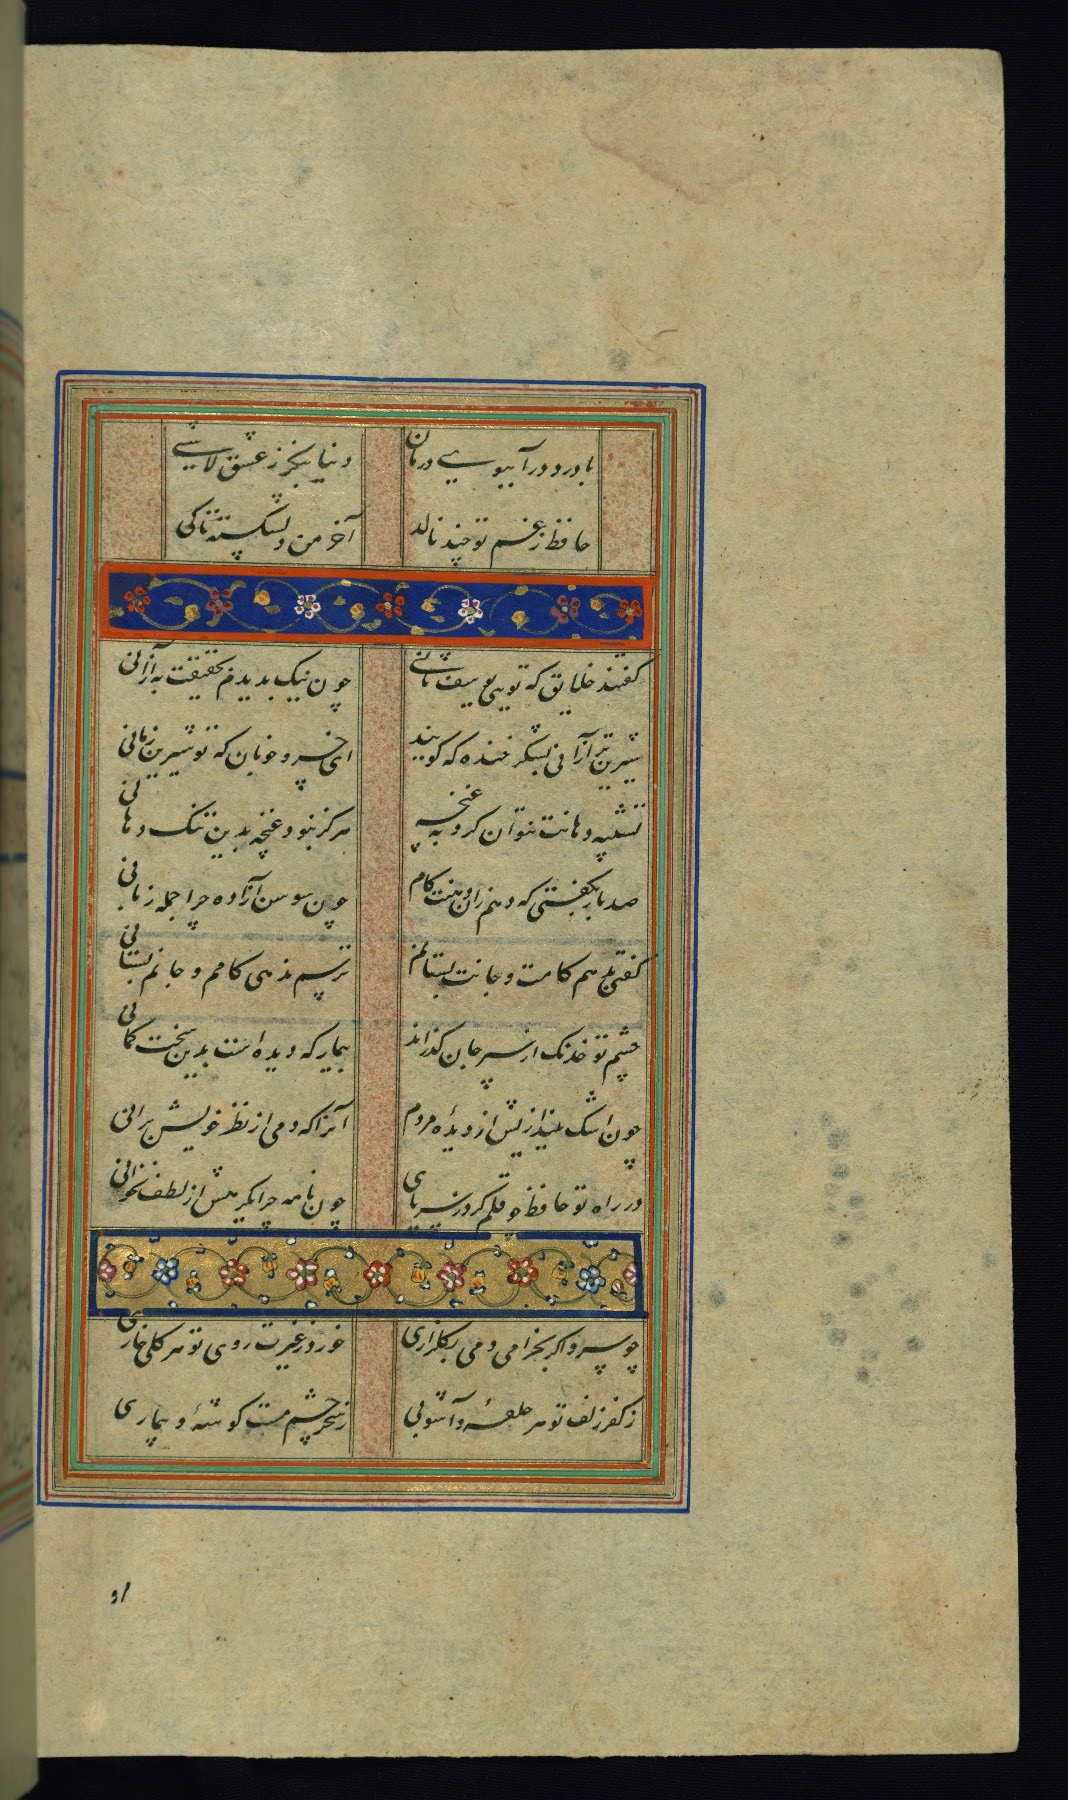 با درد درآ بیوسی درمان
دنیا بنگر ز عشق لاشیی
حافظ ز غم تو چند نالد
آخر من دلشکسته تا کی
گفتند خلایق که تویی یوسف ثانی
چون نیک بدیدم بحقیقت به ازآنی
شیرین تر از آنی بشکر خنده که گویند
ای خسرو خوبان که تو شیرین زمانی
تشبیه دهانت نتوان کرد به غنچه
هرگز نبود غنچه بدین تنک دهانی
صد بار بگفتی که دهم زان دهنت کام
چون سوسن آزاده چرا جمله زبانی
گفتی بدهم کامت و جانت بستانم
ترسم ندهی کامم و جانم بستانی
چشم تو خدنک از سپر جان گذراند
بیمار که دیده است بدین سخت کمانی
چون اشک بیندازیش از دیدهٔ مردم
آنرا که دمی از نظر خویش برانی
در راه تو حافظ چو قلم کرد ز سر پای
چون نامه چرا یکدمش از لطف نخوانی
چو سرو اگر بخرامی دمی بگلزاری
خورد ز غیرت روی تو هر گلی خاری
ز کفر زلف تو هر حلقهٔ و آشوبی
ز سحر چشم مست گوشهٔ و بیماری